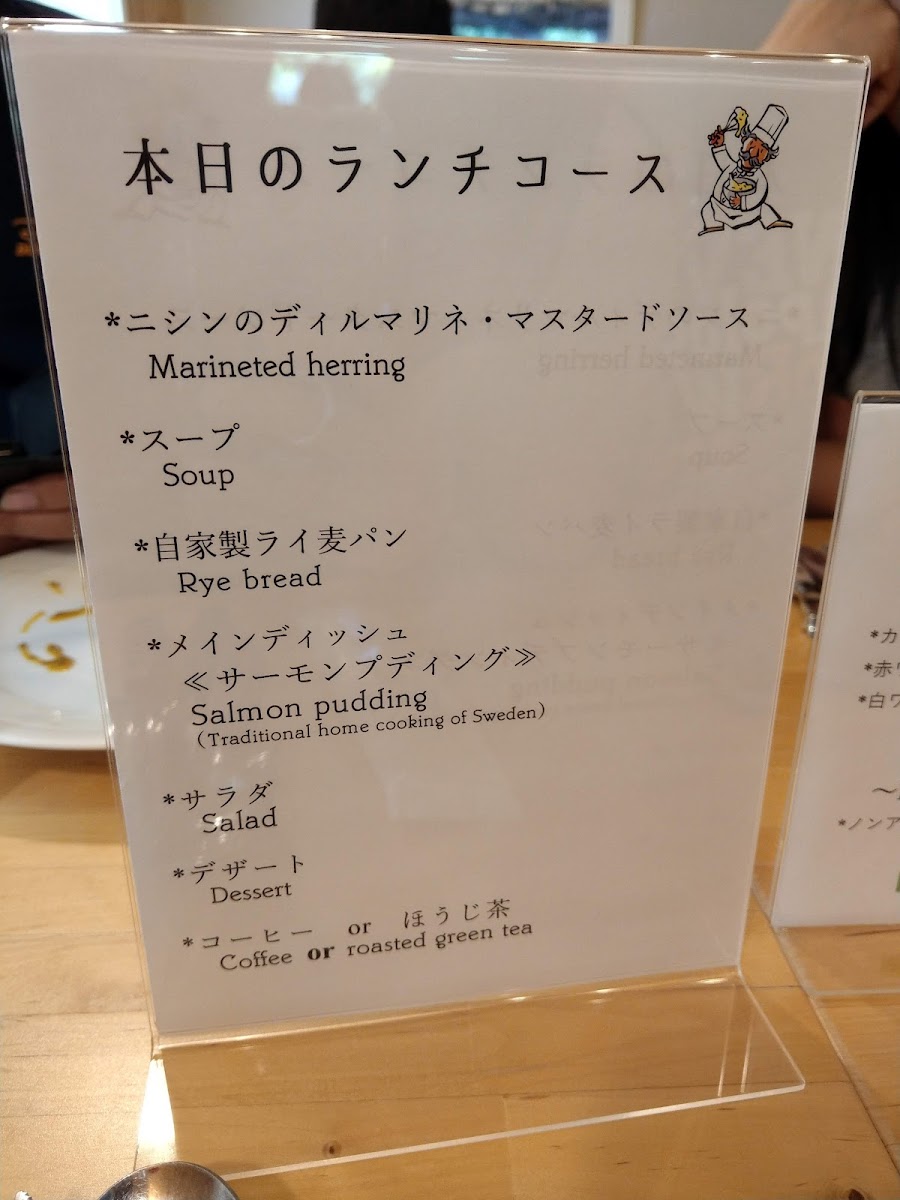 本日のランチコース
*ニシンのディルマリネ・マスタードソース
Marineted herring
*スープ
Soup
*自家製ライ麦パン
Rye bread
*メインディッシュ
≪サーモンプディング≫
Salmon pudding
(Traditional home cooking of Sweden)
*サラダ
Salad
*デザート
Dessert
*コーヒー or ほうじ茶
Coffee or roasted green tea
*カ
*赤ワ
*白ワ
*ノンア